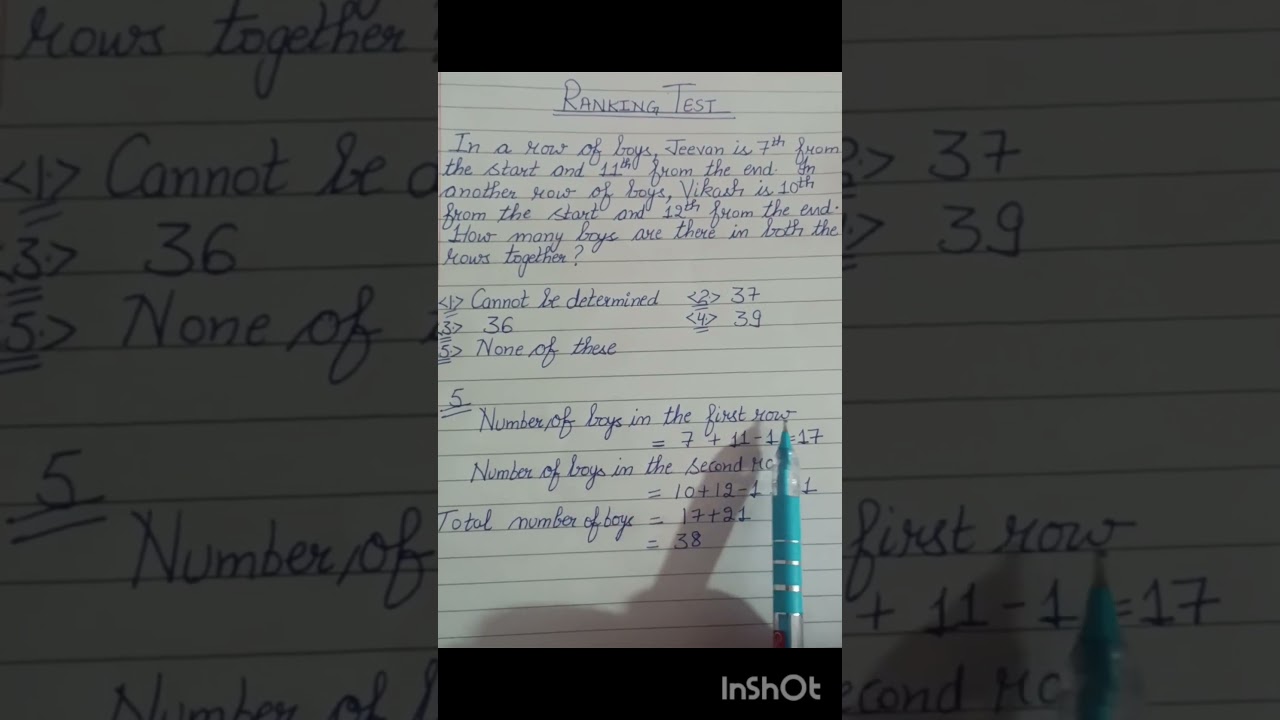 RANKING TEST
In a row of boys, Jeevan is 7th from
the start and 11th from the end. In
another row of boys, Vikash is 10th
from the start and 12th from the end.
How many boys are there in both the
rows together?
<1> Cannot be determined <2> 37
<3> 36 <4> 39
<5> None of these
5
Number of boys in the first row
= 7 + 11 - 1 = 17
Number of boys in the second
= 10 + 12 - 1
Total number of boys = 17 + 21
= 38
InShOt